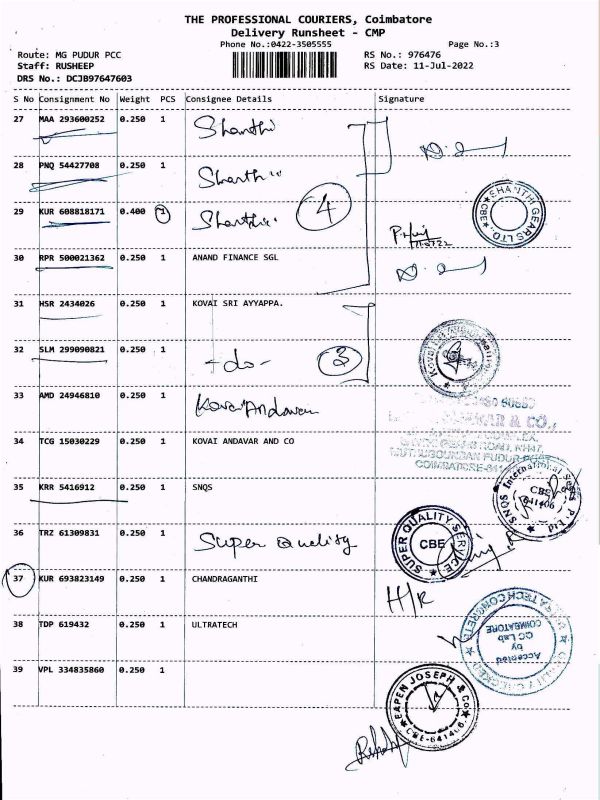 THE PROFESSIONAL COURIERS, Coimbatore
Delivery Runsheet - CMP
Phone No.:0422-3505555 Page No.:3
Route: MG PUDUR PCC RS No.: 976476
Staff: RUSHEEP RS Date: 11-Jul-2022
DRS No.: DCJB97647603
S No Consignment No Weight PCS Consignee Details Signature
27 MAA 293600252 0.250 1 Shanthi
28 PNQ 54427708 0.250 1 Shanthi
29 KUR 608818171 0.400 1 Shanthi 4
SHANTH GEARS LTD. CBE
30 RPR 500021362 0.250 1 ANAND FINANCE SGL
31 HSR 2434026 0.250 1 KOVAI SRI AYYAPPA.
32 SLM 299090821 0.250 1 -do- 3
33 AMD 24946810 0.250 1 Kovai Andavan
& CO.,
34 TCG 15030229 0.250 1 KOVAI ANDAVAR AND CO
COIMBATORE-641
35 KRR 5416912 0.250 1 SNQS
SNQS International CBE 641406
36 TRZ 61309831 0.250 1 Super Quality
SUPER QUALITY SERVICE CBE
37 KUR 693823149 0.250 1 CHANDRAGANTHI
H/R
38 TDP 619432 0.250 1 ULTRATECH
Accepted by QC Lab COIMBATORE
39 VPL 334835860 0.250 1
EAPEN JOSEPH & Co CBE-641406.